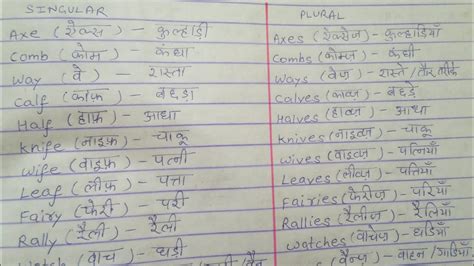 SINGULAR PLURAL
Axe (ऐक्स) - कुल्हाड़ी Axes (ऐक्सेज) - कुल्हाडियाँ
Comb (कोम) - कंघा Combs (कोम्ज) - कंघी
Way (वे) - रास्ता Ways (वेज) - रास्ते/तौर तरीके
Calf (काफ) - बछड़ा Calves (काव्ज) - बछड़े
Half (हाफ़) - आधा Halves (हाव्ज) - आधा
Knife (नाइफ़) - चाकू Knives (नाइव्ज) - चाकू
Wife (वाइफ़) - पत्नी Wives (वाइव्ज) - पत्नियाँ
Leaf (लीफ़) - पत्ता Leaves (लीव्ज) - पत्तियाँ
Fairy (फेरी) - परी Fairies (फेरीज) - परियाँ
Rally (रैली) - रैली Rallies (रैलीज) - रैलियाँ
Watch (वाच) - घड़ी Watches (वाचेज) - घडियाँ
(वैन (वैन्ज) - वाहन/गाडियाँ